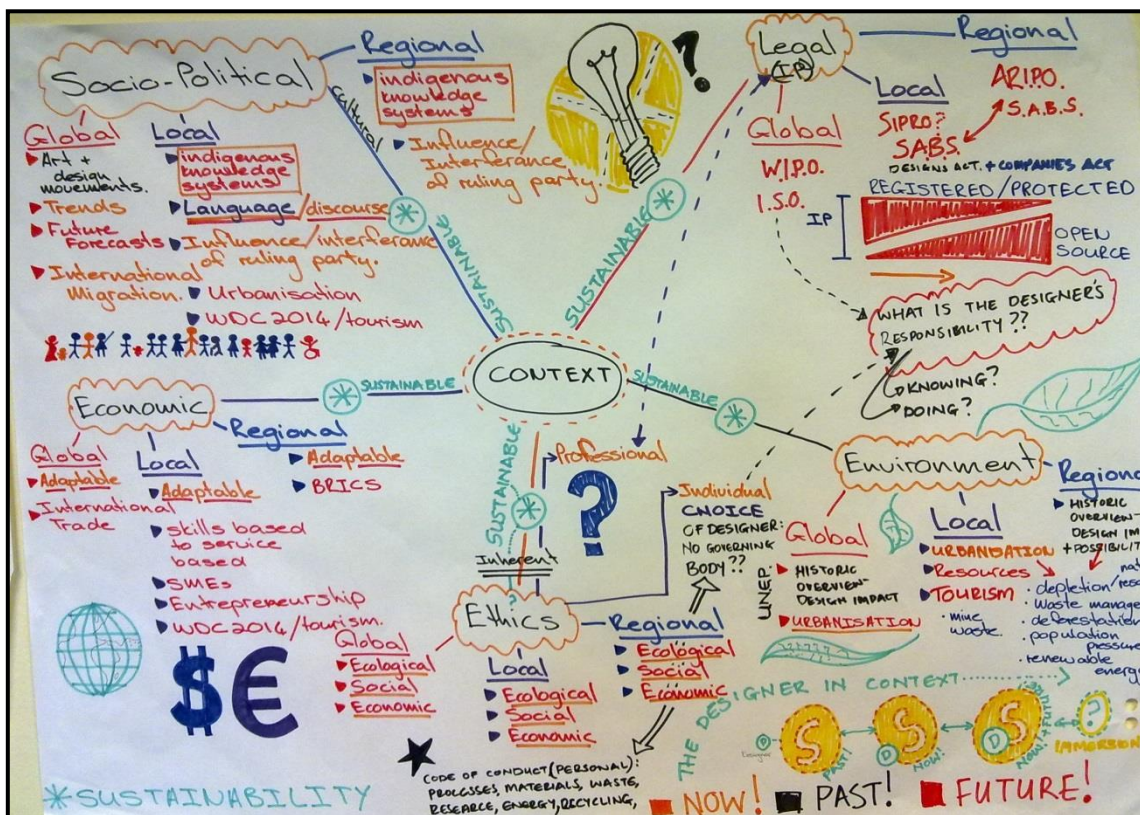 Socio-Political
Regional
indigenous
knowledge
systems
Influence/
Interferance
of ruling party.
cultural
Global
Art +
design
movements.
Trends
Future
Forecasts
International
Migration.
Local
indigenous
knowledge
systems
Language/discourse
Influence/interferance
of ruling party.
Urbanisation
WDC2014/tourism
SUSTAINABLE
?
SUSTAINABLE
Legal
(IP)
Regional
ARIPO.
S.A.B.S.
Local
SIPRO?
S.A.B.S.
DESIGNS ACT. + COMPANIES ACT
Global
W.I.P.O.
I.S.O.
REGISTERED/PROTECTED
IP
OPEN
SOURCE
WHAT IS THE DESIGNER'S
RESPONSIBILITY??
KNOWING?
DOING?
CONTEXT
SUSTAINABLE
SUSTAINABLE
SUSTAINABLE
Economic
Regional
Adaptable
BRICS
Global
Adaptable
International
Trade
Local
Adaptable
skills based
to service
based
SMEs
Entrepreneurship
WDC2014/tourism.
$€
Professional
?
Individual
CHOICE
OF DESIGNER:
NO GOVERNING
BODY??
Inherent
?
Ethics
Global
Ecological
Social
Economic
Local
Ecological
Social
Economic
Regional
Ecological
Social
Economic
CODE OF CONDUCT(PERSONAL):
PROCESSES, MATERIALS, WASTE,
RESEARCE, ENERGY, RECYCLING,
Environment
Global
HISTORIC
OVERVIEW-
DESIGN IMPACT
URBANISATION
UNEP:
Local
URBANISATION
Resources
TOURISM
mine
waste.
Regiona
HISTORIC
OVERVIEW-
DESIGN IM
+POSSIBILIT
depletion/
waste manage
deforestation
population
pressure
renewable
energ
THE DESIGNER IN CONTEXT
D
S
PAST!
D
S
NOW!
D
S
NOW!+FUTURE
?
IMMERSION
SUSTAINABILITY
NOW!
PAST!
FUTURE!